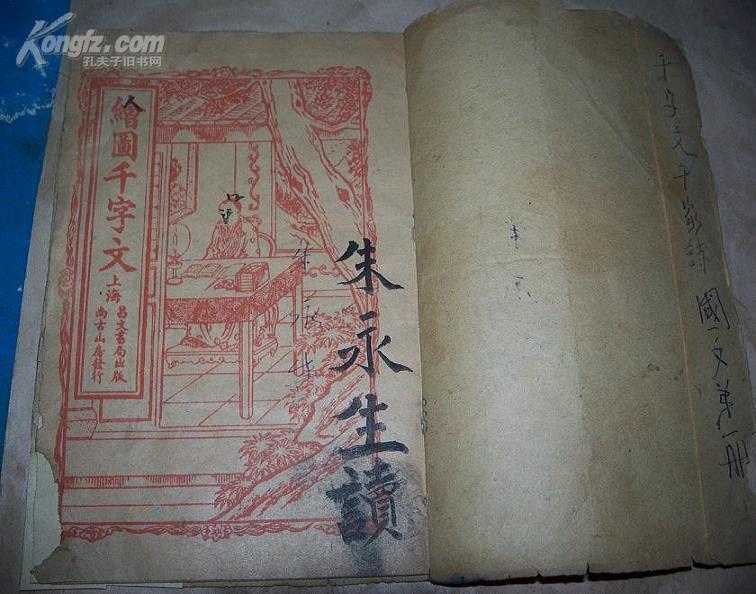 Kongfz.com
孔夫子旧书网
繪圖千字文
上海
昌文書局出版
尚古山房發行
朱永生讀
千字文千家詩 國文第一册